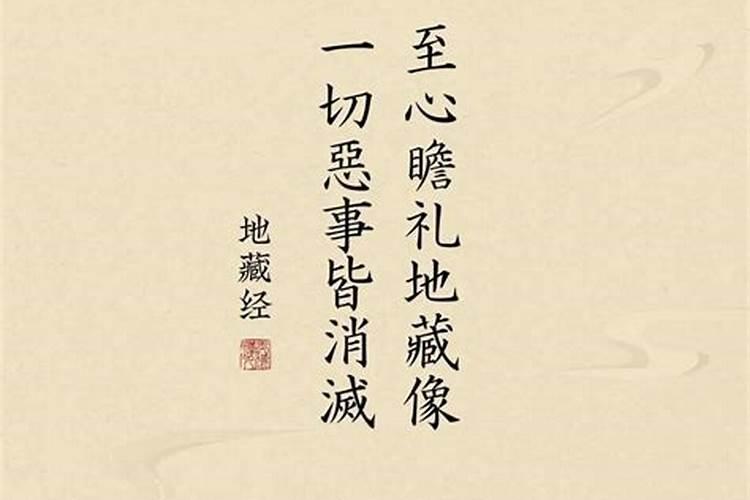 至心瞻礼地藏像
一切惡事皆消滅
地藏经